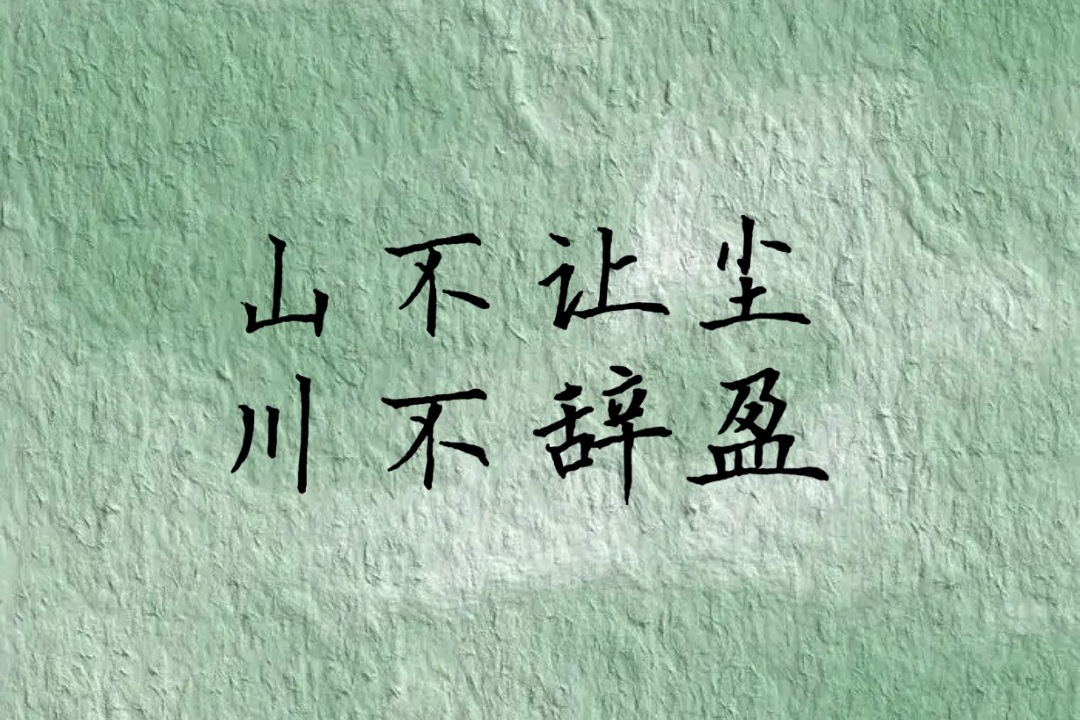 山不让尘
川不辞盈